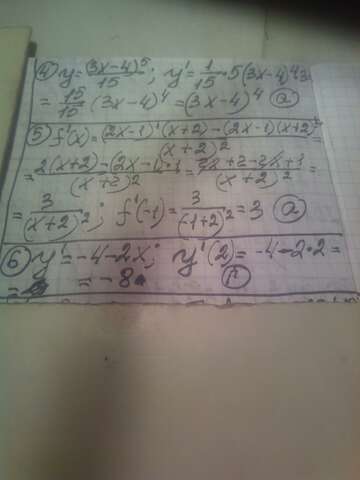 ④ y = (3x-4)⁵/15; y' = 1/15·5(3x-4)⁴·3
= 15/15 (3x-4)⁴ = (3x-4)⁴ ⓐ
⑤ f'(x) = ((2x-1)'(x+2)-(2x-1)(x+2)')/(x+2)² =
= (2(x+2)-(2x-1)·1)/(x+2)² = (2x+2-2x+1)/(x+2)² =
= 3/(x+2)²; f'(-1) = 3/(-1+2)² = 3 ⓐ
⑥ y' = -4-2x; y'(2) = -4-2·2 =
= = -8.